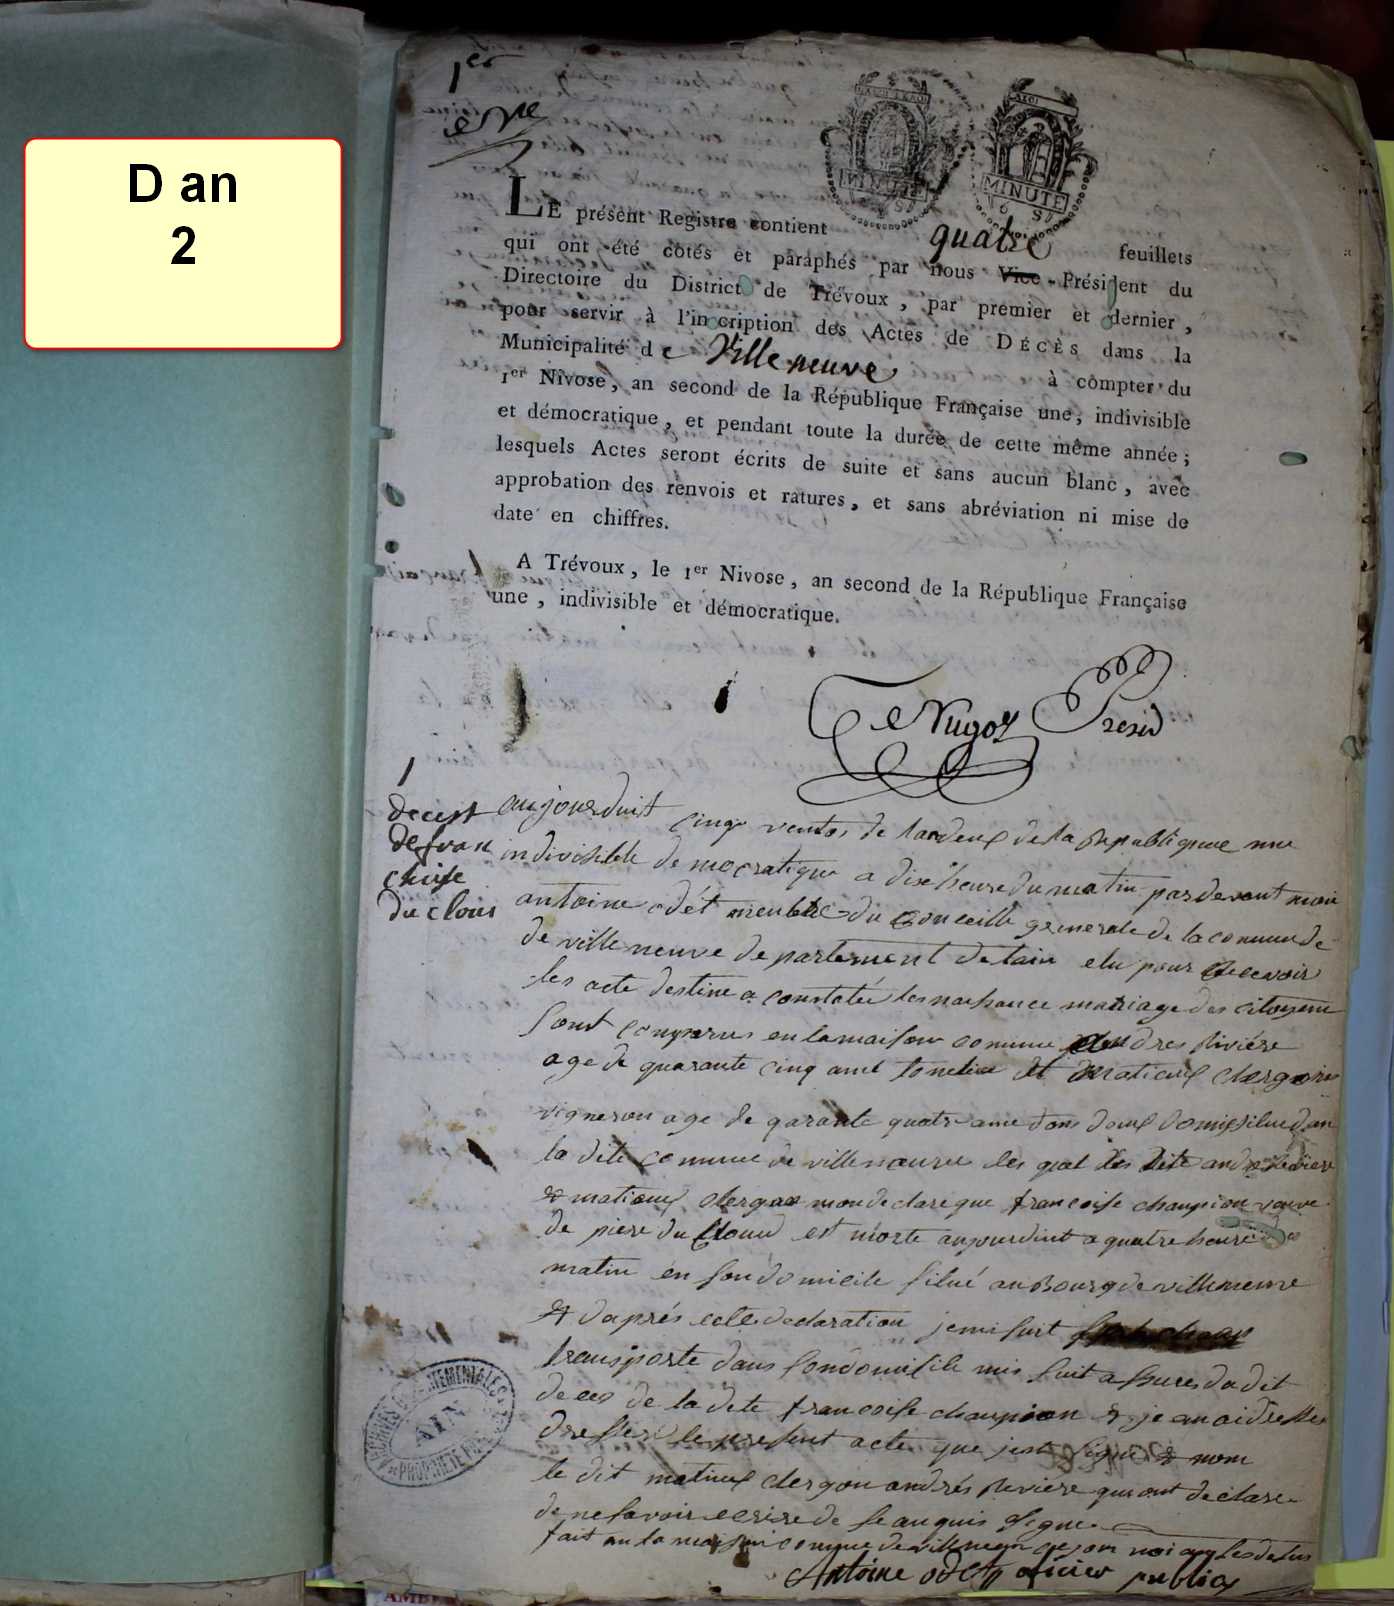 D an
2
1er
MINUTE
6 S
MINUTE
6 S
LE présent Registre contient quatre feuillets
qui ont été cotés et paraphés par nous Vice-Président du
Directoire du District de Trévoux, par premier et dernier,
pour servir à l'inscription des Actes de DÉCÈS dans la
Municipalité de Villeneuve à compter du
1er Nivose, an second de la République Française une, indivisible
et démocratique, et pendant toute la durée de cette même année;
lesquels Actes seront écrits de suite et sans aucun blanc, avec
approbation des renvois et ratures, et sans abréviation ni mise de
date en chiffres.
A Trévoux, le 1er Nivose, an second de la République Française
une, indivisible et démocratique.
Presid
1
decest
de fran
choise
du clous
aujourduit cinq ventos de landeux de la Republique une
indivisible democratique a dix heure du matin pardevant moi
antoine odét menbre du Conceille generale de la commude
de villeneuve departement de lain elu pour Recevoir
les acte destine a constatée les naissance mariage des citoyem
sont comparus en la maison comune andres Riviére
age de quarante cinq anné tonelie et matieux clergon
vigneron age de garante quatre anne tous deux domissilie dan
la dite comune de villeneuve les quel les dite andre Reviere
& matieux clergon mon declare que francoise champion veuve
de piere du Cloud est morte aujourduit a quatre heure
matin en son domicile situé au Bourg de villeneuve
& daprés cette declaration je mi suit
transporte dans son domisile mis suit assures du dit
deces de la dite francoise champion & je an aidresse
dresser le present acte que jest signe & nom
le dit matieux clergon andrés Reviere qui ont declare
de ne savoir ecrire de se anquis signe
fait an la maison comune de villeneuve
Antoine odet oficier public
ARCHIVES DÉPARTEMENTALES
AIN
PROPRIÉTÉ PUB